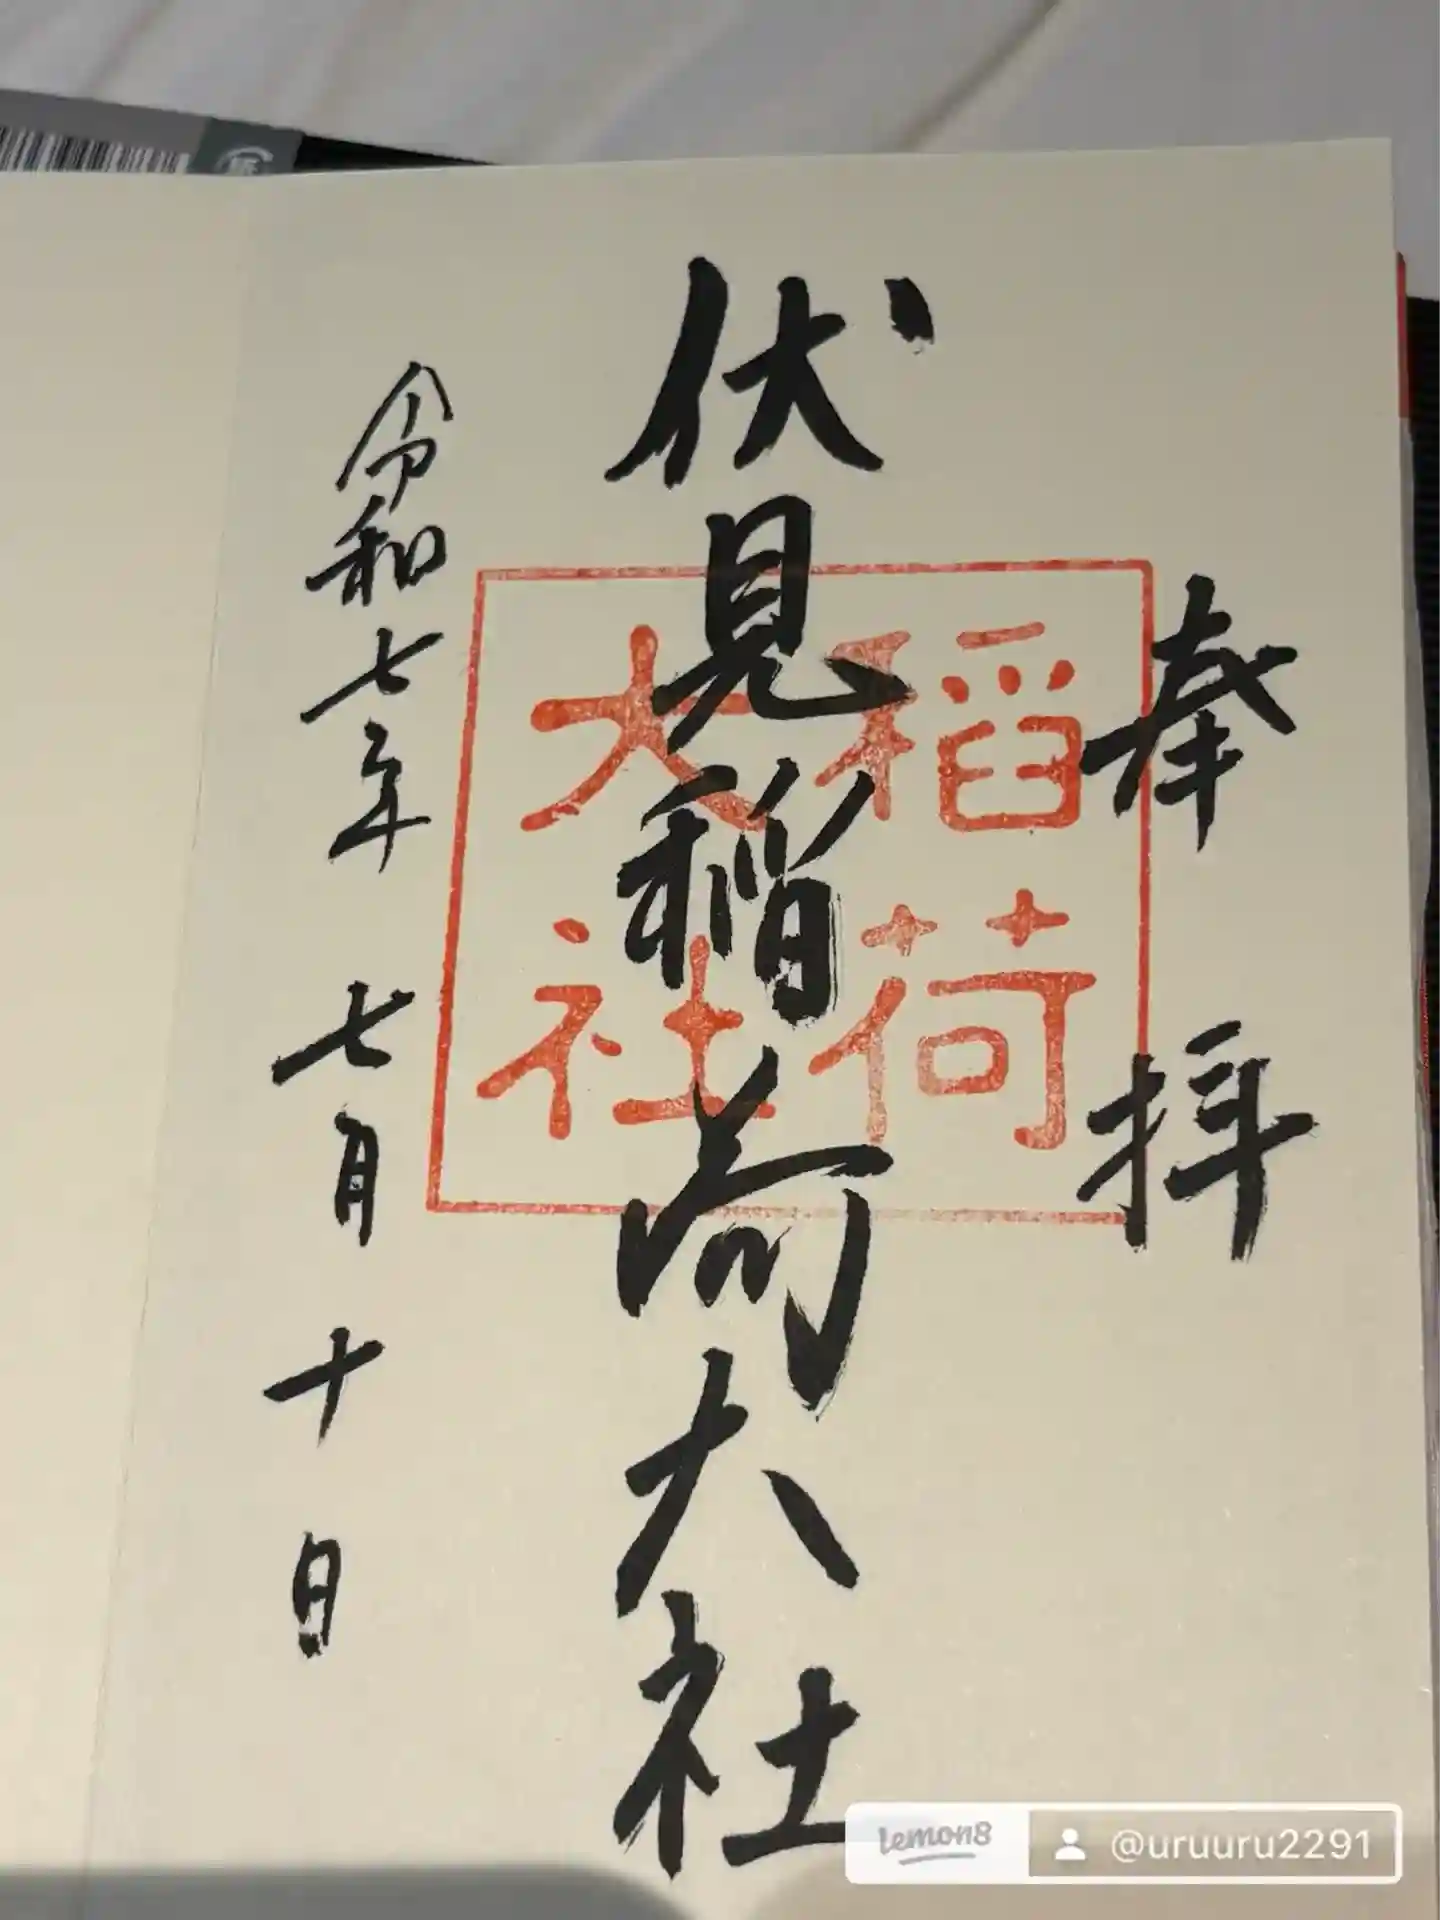 奉拝
伏見稲荷大社
稲荷
大社
令和七年七月十日
lemon8
@uruuru2291